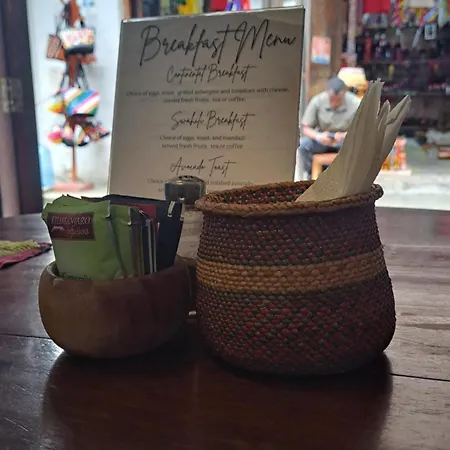 Breakfast Menu
Continental Breakfast
Choice of eggs, toast, grilled aubergine and tomatoes with cheese,
served fresh fruits, tea or coffee.
Swahili Breakfast
Choice of eggs, toast, and
served fresh fruits, tea or coffee
Avocado Toast
Choice